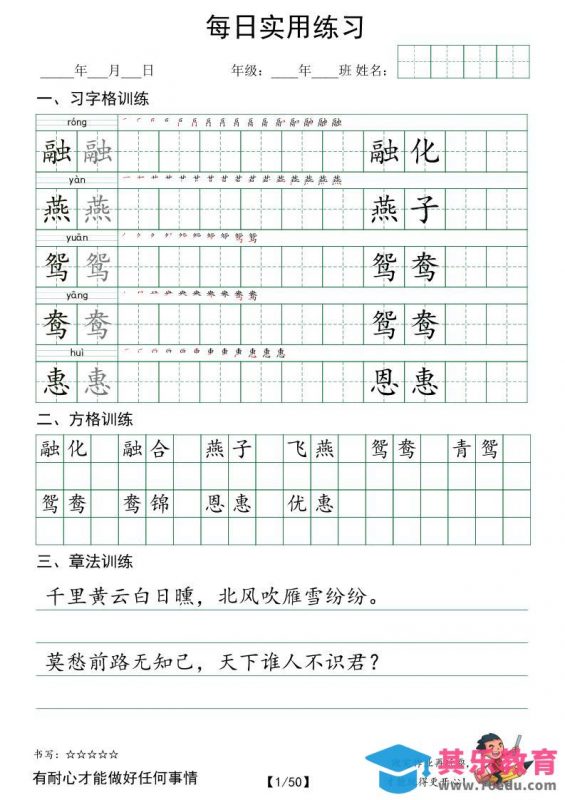 每日实用练习
_____年___月___日 年级：____年____班 姓名：
一、习字格训练
róng
融 融 融 化
yàn
燕 燕 燕 子
yuān
鸳 鸳 鸳 鸯
yāng
鸯 鸯 鸳 鸯
huì
惠 惠 恩 惠
二、方格训练
融化 融合 燕子 飞燕 鸳鸯 青鸳
鸳鸯 鸯锦 恩惠 优惠
三、章法训练
千里黄云白日曛，北风吹雁雪纷纷。
莫愁前路无知己，天下谁人不识君？
书写：☆☆☆☆☆
有耐心才能做好任何事情
【1/50】
其乐教育